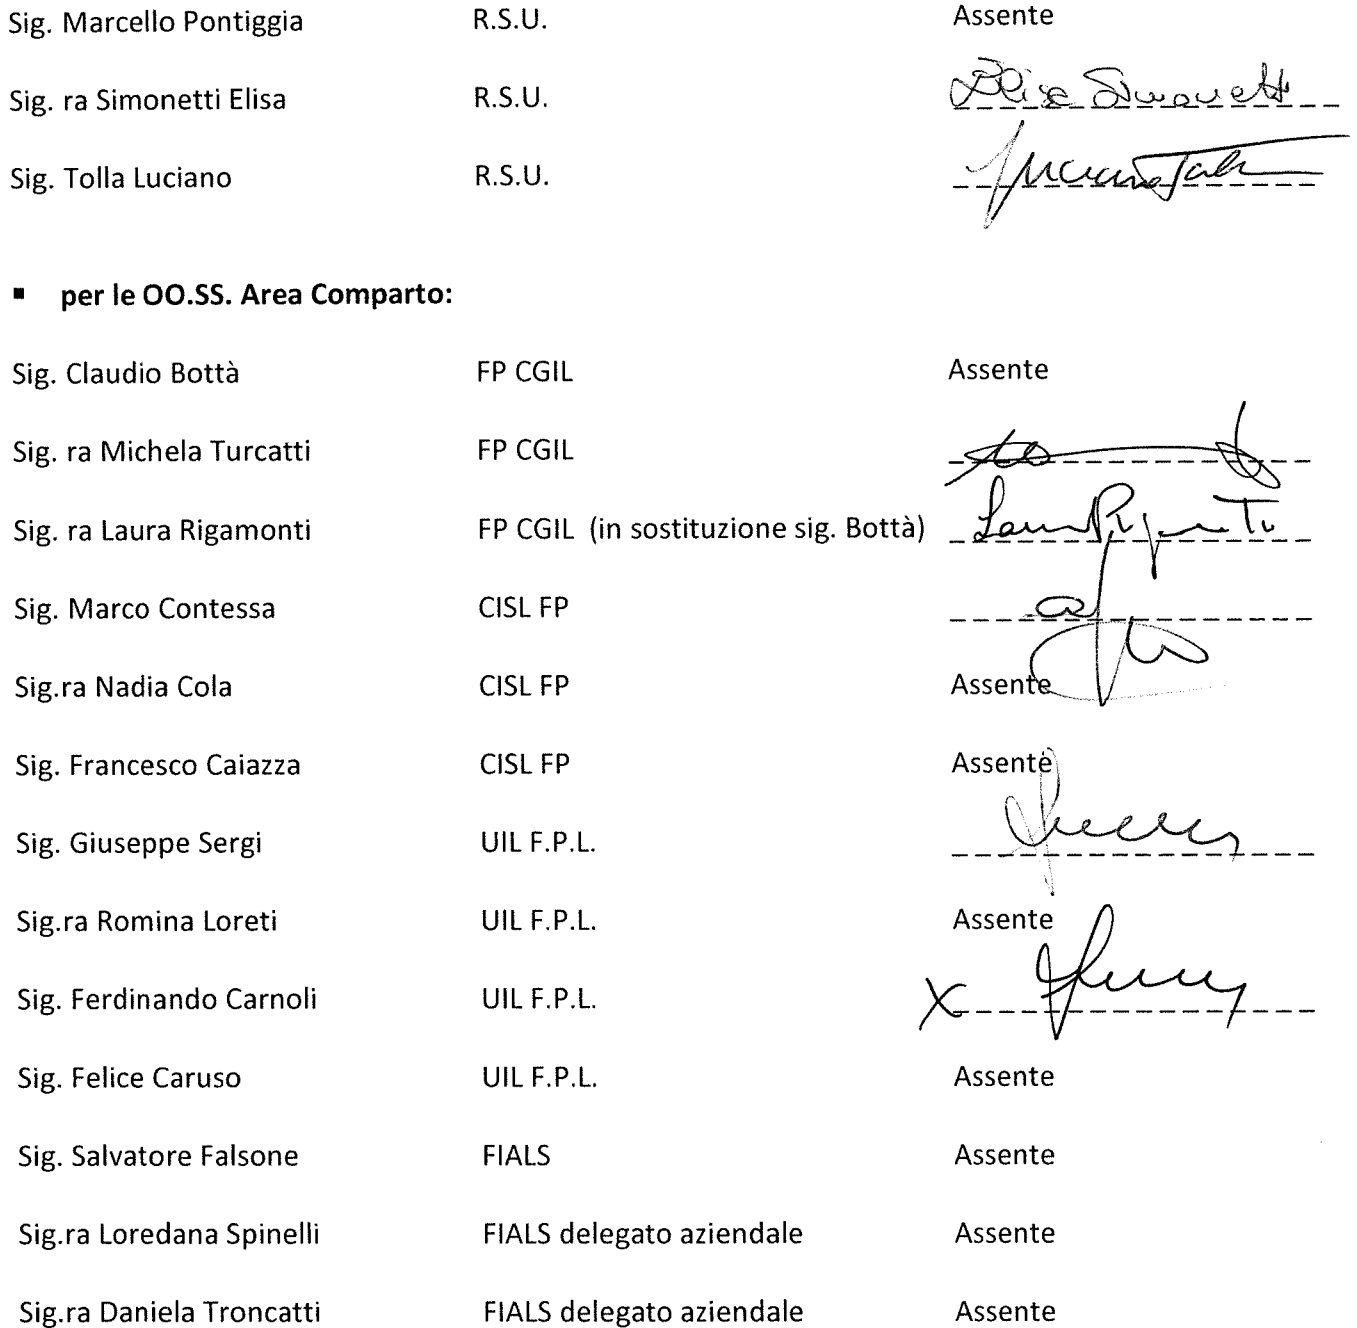 Sig. Marcello Pontiggia R.S.U. Assente
Sig. ra Simonetti Elisa R.S.U. Elisa Simonetti
Sig. Tolla Luciano R.S.U. Luciano Tolla
▪ per le OO.SS. Area Comparto:
Sig. Claudio Bottà FP CGIL Assente
Sig. ra Michela Turcatti FP CGIL
Sig. ra Laura Rigamonti FP CGIL (in sostituzione sig. Bottà) Laura Rigamonti
Sig. Marco Contessa CISL FP
Sig.ra Nadia Cola CISL FP Assente
Sig. Francesco Caiazza CISL FP Assente
Sig. Giuseppe Sergi UIL F.P.L.
Sig.ra Romina Loreti UIL F.P.L. Assente
Sig. Ferdinando Carnoli UIL F.P.L. X
Sig. Felice Caruso UIL F.P.L. Assente
Sig. Salvatore Falsone FIALS Assente
Sig.ra Loredana Spinelli FIALS delegato aziendale Assente
Sig.ra Daniela Troncatti FIALS delegato aziendale Assente